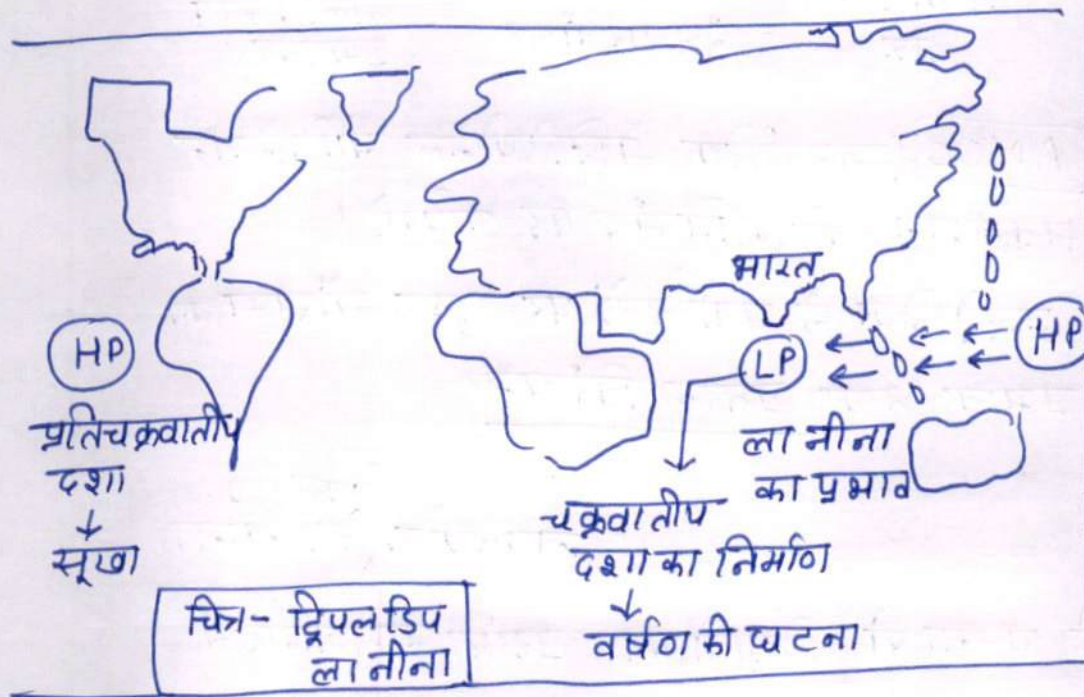 भारत
HP
LP
HP
प्रतिचक्रवातीय
दशा
↓
सूखा
ला नीना
का प्रभाव
चक्रवातीय
दशा का निर्माण
↓
वर्षण की घटना
चित्र- ट्रिपल डिप
ला नीना